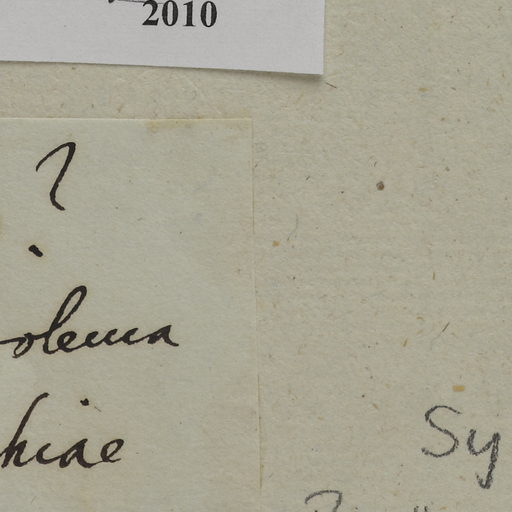 2010
?
olema
hiae
Sy